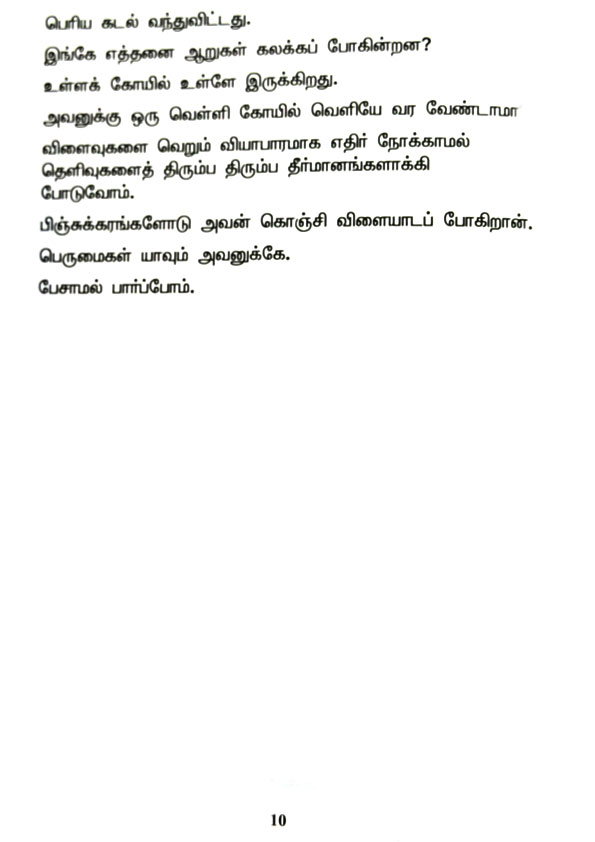 பெரிய கடல் வந்துவிட்டது.
இங்கே எத்தனை ஆறுகள் கலக்கப் போகின்றன?
உள்ளக் கோயில் உள்ளே இருக்கிறது.
அவனுக்கு ஒரு வெள்ளி கோயில் வெளியே வர வேண்டாமா
விளைவுகளை வெறும் வியாபாரமாக எதிர் நோக்காமல்
தெளிவுகளைத் திரும்ப திரும்ப தீர்மானங்களாக்கி
போடுவோம்.
பிஞ்சுக்கரங்களோடு அவன் கொஞ்சி விளையாடப் போகிறான்.
பெருமைகள் யாவும் அவனுக்கே.
பேசாமல் பார்ப்போம்.
10